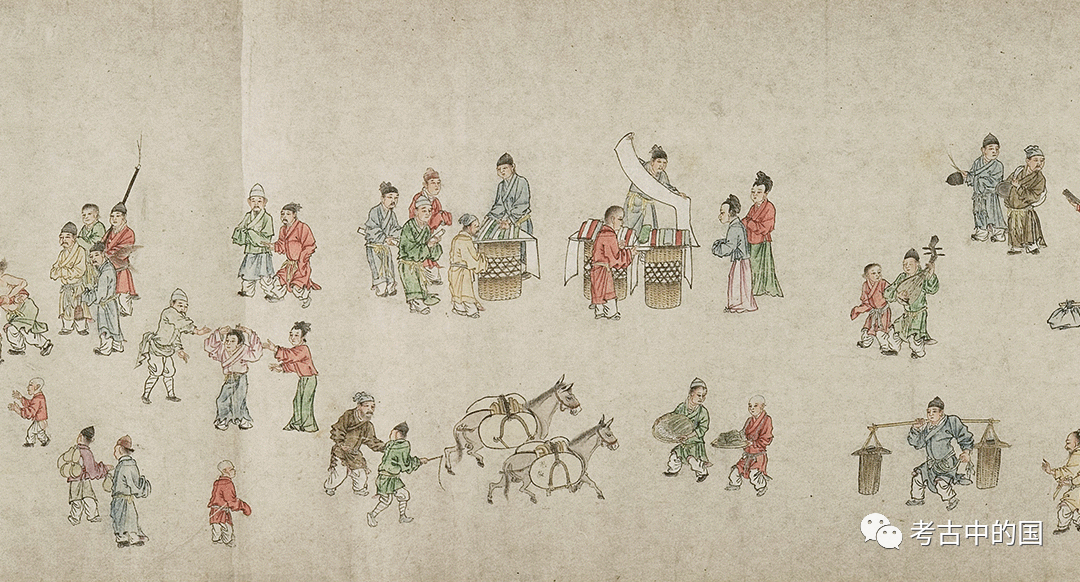 考古中的国